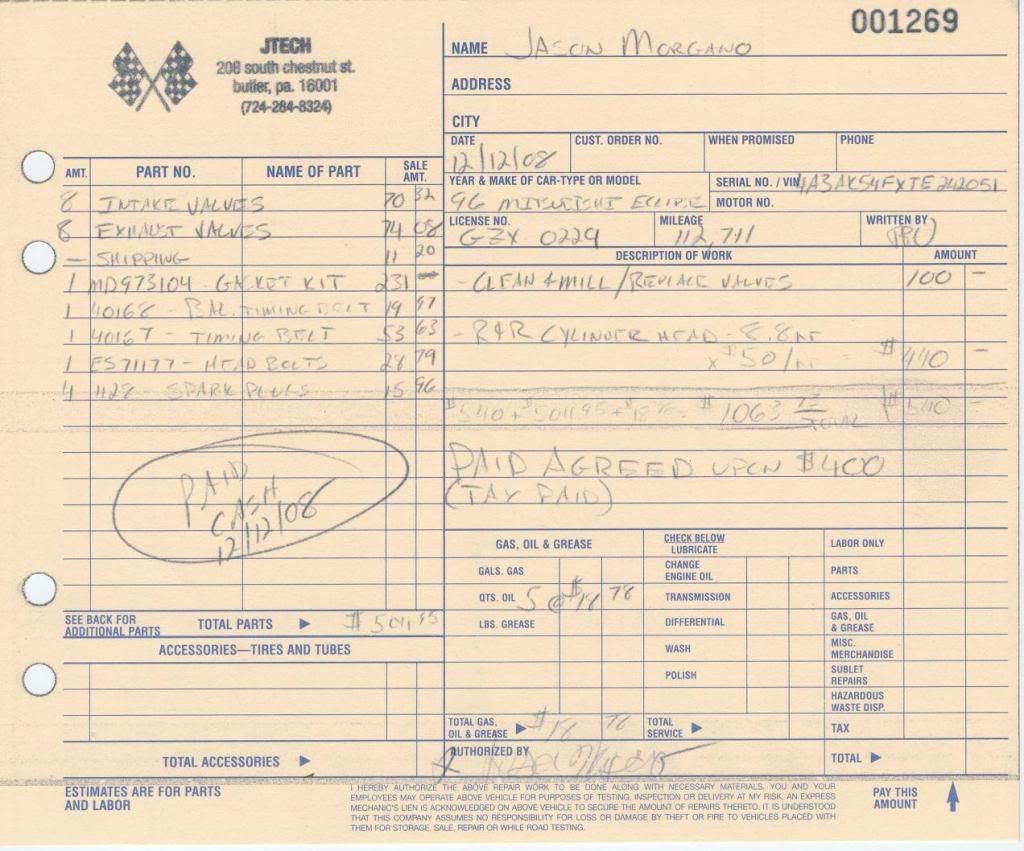 001269
JTECH
208 south chestnut st.
butler, pa. 16001
(724-284-8324)
NAME JASON MORGANO
ADDRESS
CITY
DATE 12/12/08 CUST. ORDER NO. WHEN PROMISED PHONE
YEAR & MAKE OF CAR-TYPE OR MODEL 96 MITSUBISHI ECLIPSE
SERIAL NO. / VIN 4A3AK54FXTE242051
MOTOR NO.
LICENSE NO. GZX 0229 MILEAGE 112,711 WRITTEN BY
AMT. PART NO. NAME OF PART SALE AMT.
8 INTAKE VALVES 70 32
8 EXHAUST VALVES 74 08
— SHIPPING 11 20
1 MD973104 - GASKET KIT 231 —
1 40168 - BAL. TIMING BELT 19 97
1 40167 - TIMING BELT 53 63
1 ES71177 - HEAD BOLTS 28 79
4 1128 - SPARK PLUGS 15 96
PAID
CASH
12/12/08
SEE BACK FOR ADDITIONAL PARTS TOTAL PARTS ▶ $501.95
ACCESSORIES—TIRES AND TUBES
TOTAL ACCESSORIES ▶
DESCRIPTION OF WORK AMOUNT
- CLEAN & MILL / REPLACE VALVES 100 —
- R&R CYLINDER HEAD - 8.8 HR
x $50/HR = $440 —
$540 + $501.95 + $18 = $1063 73 TOTAL $540 —
PAID AGREED UPON $400
(TAX PAID)
GAS, OIL & GREASE CHECK BELOW LUBRICATE LABOR ONLY
GALS. GAS CHANGE ENGINE OIL PARTS
QTS. OIL 5 @ $18 78 TRANSMISSION ACCESSORIES
LBS. GREASE DIFFERENTIAL GAS, OIL & GREASE
WASH MISC. MERCHANDISE
POLISH SUBLET REPAIRS
HAZARDOUS WASTE DISP.
TOTAL GAS, OIL & GREASE ▶ $18 78 TOTAL SERVICE ▶ TAX
AUTHORIZED BY TOTAL ▶
ESTIMATES ARE FOR PARTS
AND LABOR
I HEREBY AUTHORIZE THE ABOVE REPAIR WORK TO BE DONE ALONG WITH NECESSARY MATERIALS. YOU AND YOUR
EMPLOYEES MAY OPERATE ABOVE VEHICLE FOR PURPOSES OF TESTING, INSPECTION OR DELIVERY AT MY RISK. AN EXPRESS
MECHANIC'S LIEN IS ACKNOWLEDGED ON ABOVE VEHICLE TO SECURE THE AMOUNT OF REPAIRS THERETO. IT IS UNDERSTOOD
THAT THIS COMPANY ASSUMES NO RESPONSIBILITY FOR LOSS OR DAMAGE BY THEFT OR FIRE TO VEHICLES PLACED WITH
THEM FOR STORAGE, SALE, REPAIR OR WHILE ROAD TESTING.
PAY THIS
AMOUNT